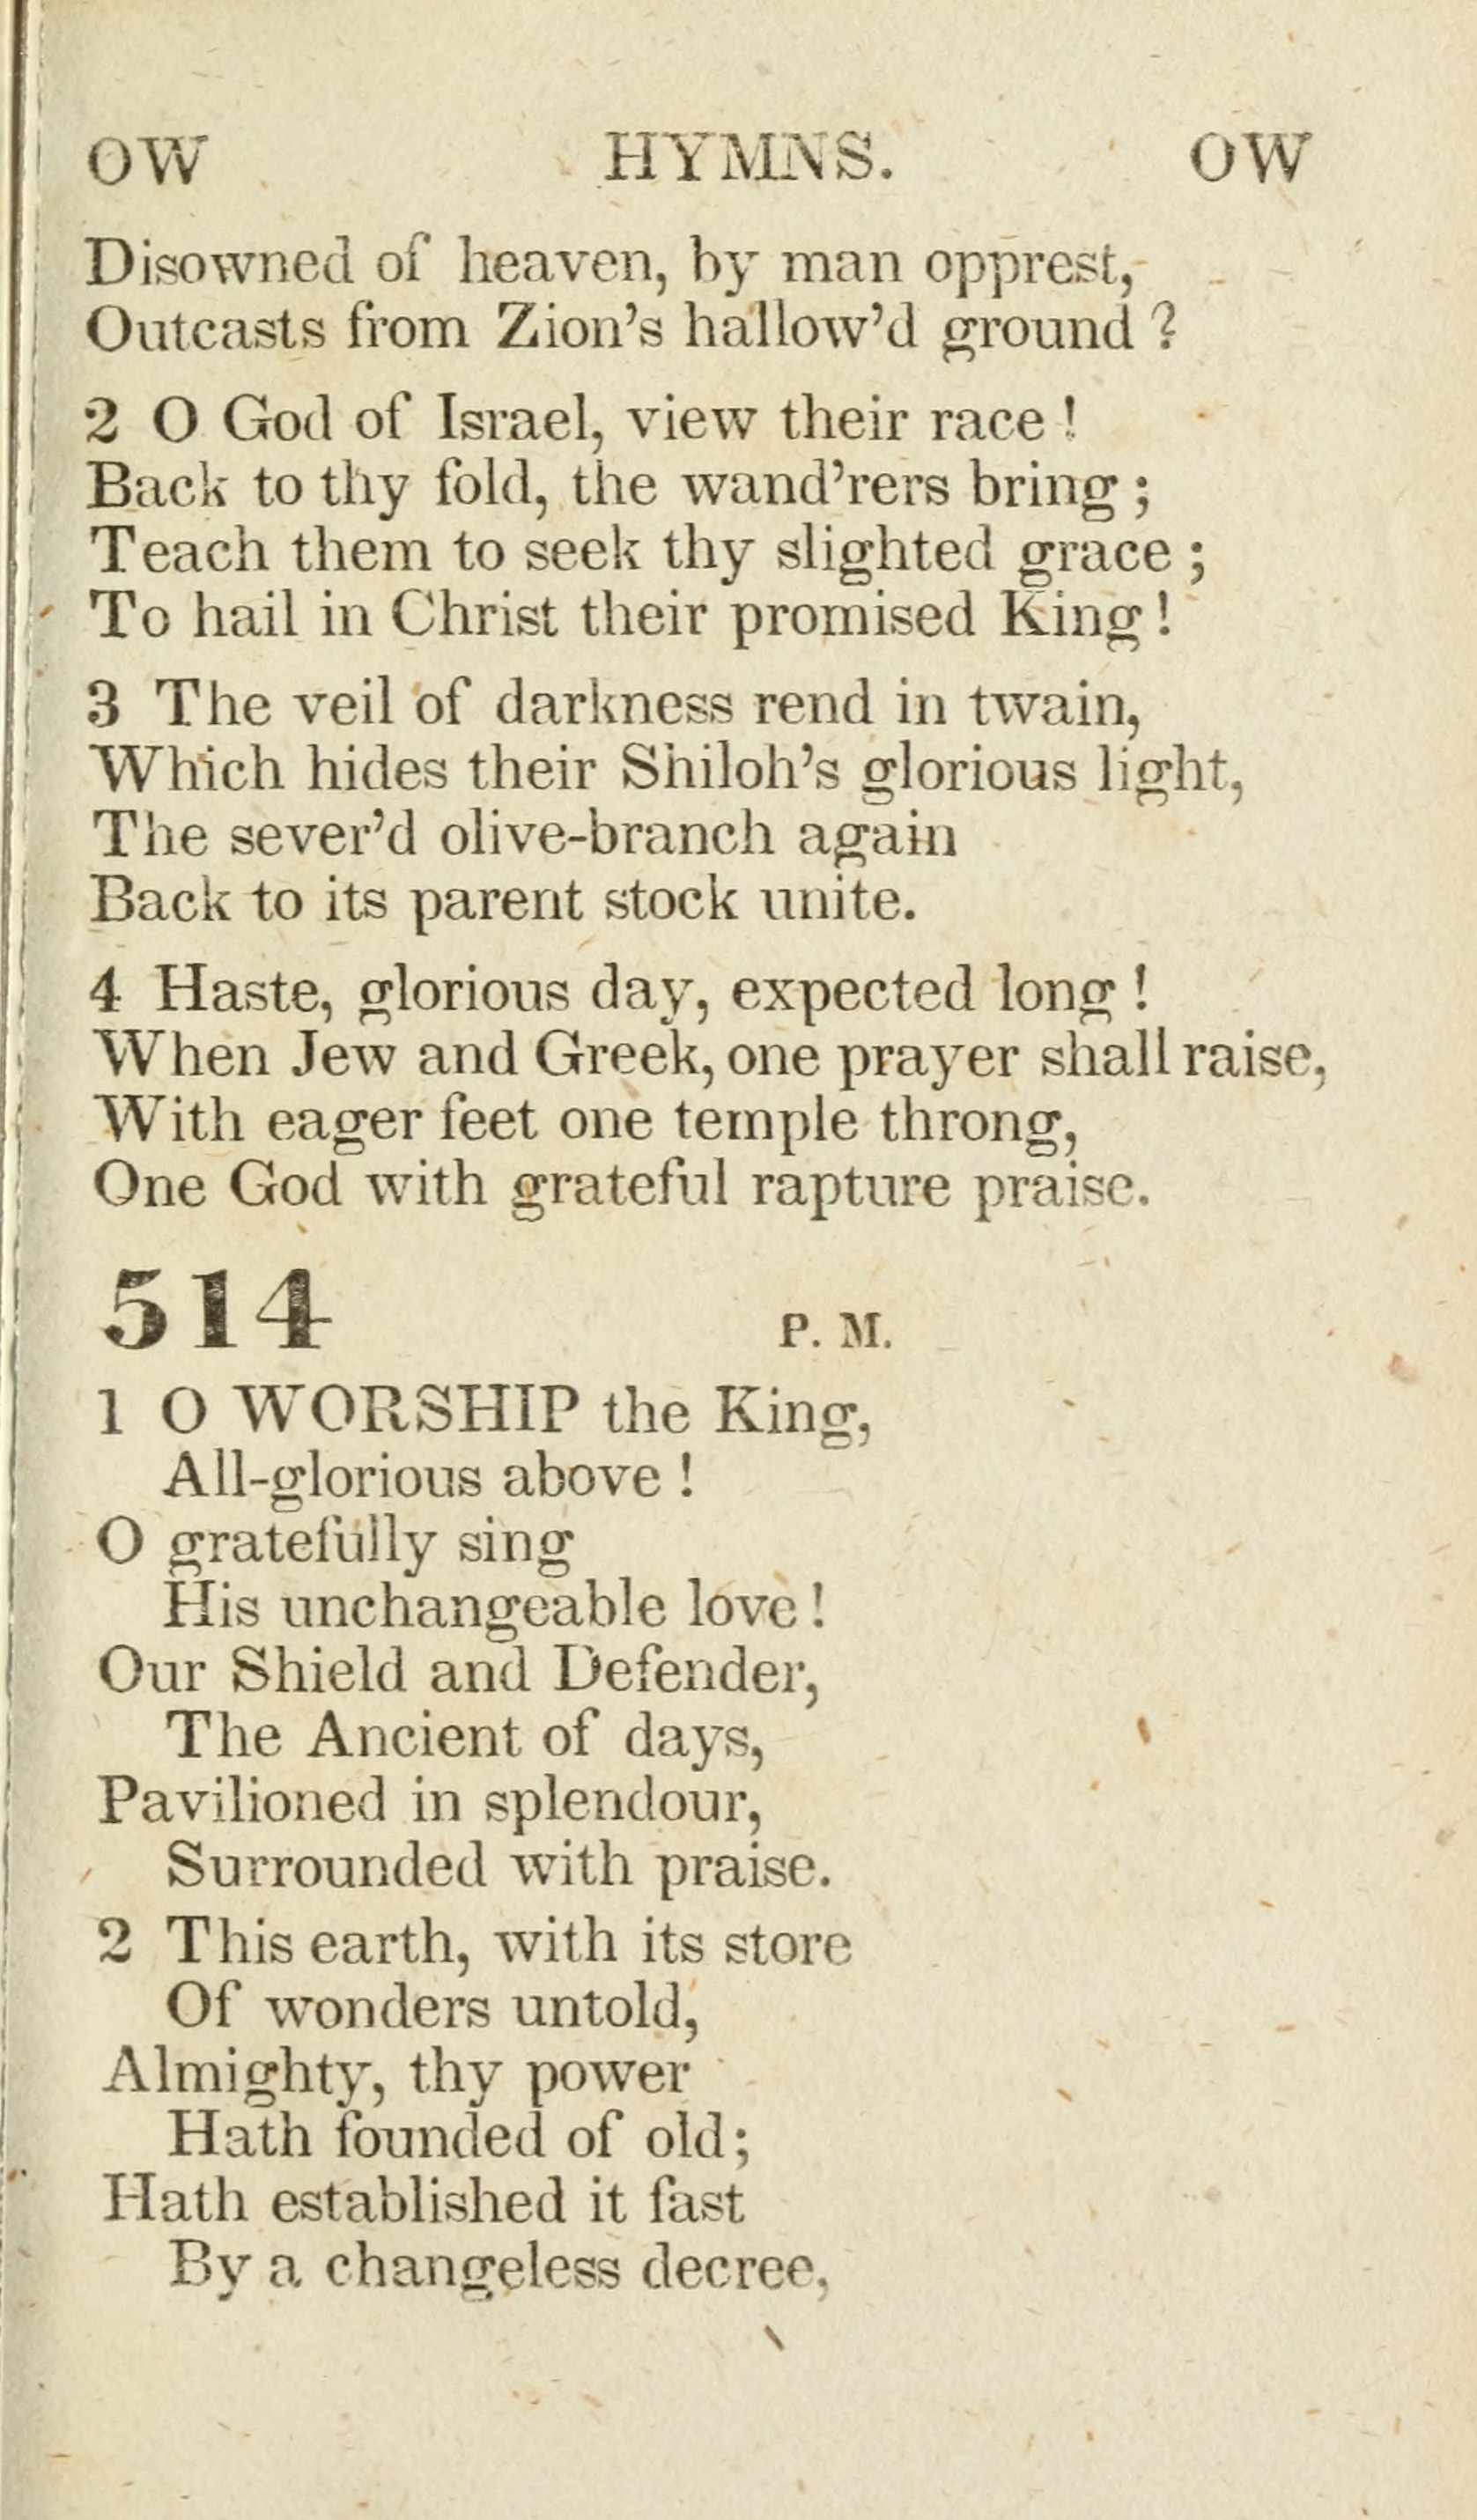 OW HYMNS. OW
Disowned of heaven, by man opprest,
Outcasts from Zion's hallow'd ground ?
2 O God of Israel, view their race !
Back to thy fold, the wand'rers bring ;
Teach them to seek thy slighted grace ;
To hail in Christ their promised King !
3 The veil of darkness rend in twain,
Which hides their Shiloh's glorious light,
The sever'd olive-branch again
Back to its parent stock unite.
4 Haste, glorious day, expected long !
When Jew and Greek, one prayer shall raise,
With eager feet one temple throng,
One God with grateful rapture praise.
514 P. M.
1 O WORSHIP the King,
All-glorious above !
O gratefully sing
His unchangeable love !
Our Shield and Defender,
The Ancient of days,
Pavilioned in splendour,
Surrounded with praise.
2 This earth, with its store
Of wonders untold,
Almighty, thy power
Hath founded of old;
Hath established it fast
By a changeless decree,